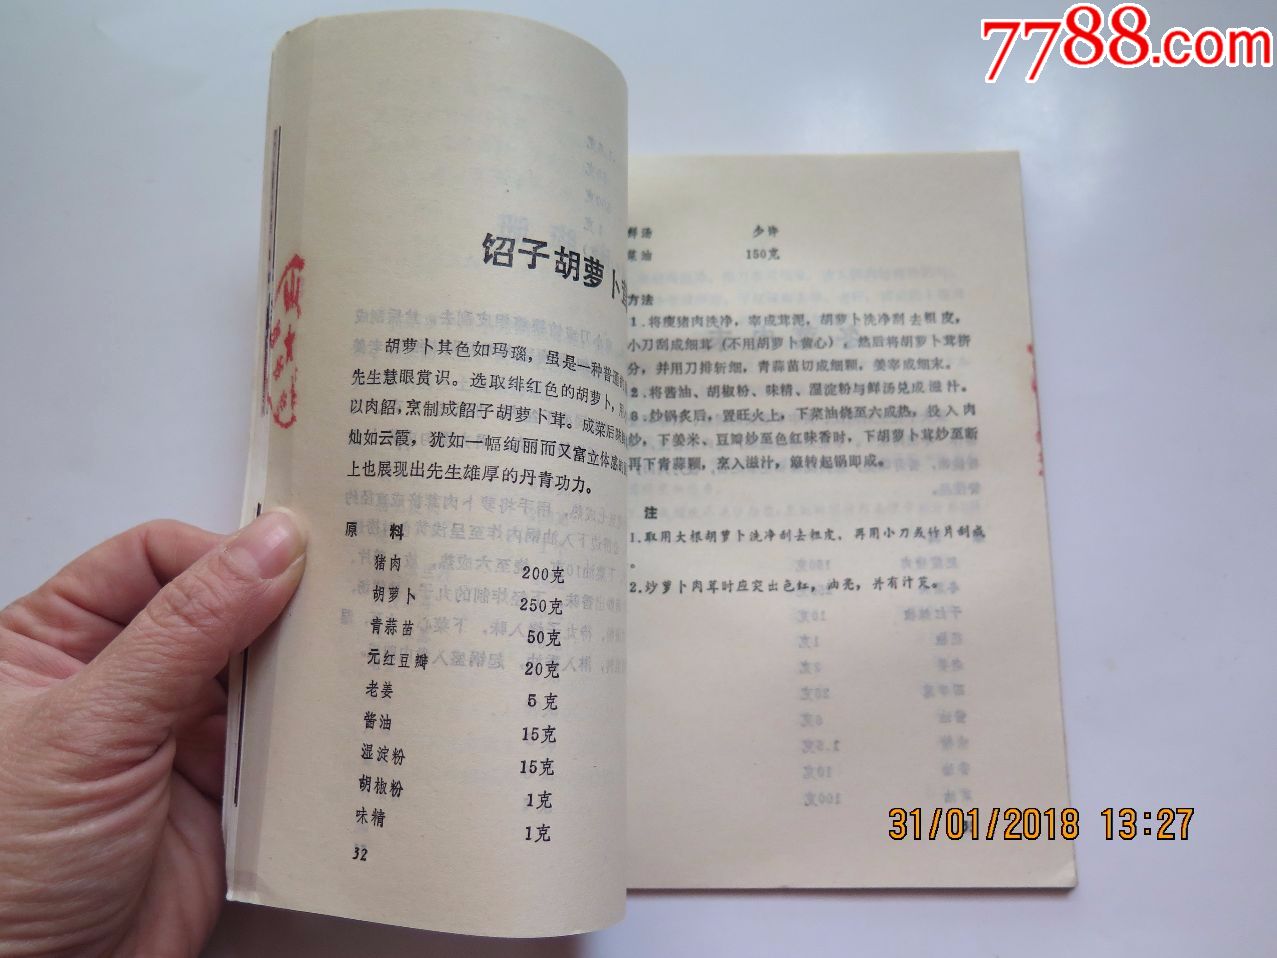 7788.com
饴子胡萝卜
胡萝卜其色如玛瑙，虽是一种普通的
先生慧眼赏识。选取绯红色的胡萝卜，
以肉饴，烹制成饴子胡萝卜茸。成菜后
灿如云霞，犹如一幅绚丽而又富立体感
上也展现出先生雄厚的丹青功力。
原 料
猪肉 200克
胡萝卜 250克
青蒜苗 50克
元红豆瓣 20克
老姜 5克
酱油 15克
湿淀粉 15克
胡椒粉 1克
味精 1克
32
鲜汤 少许
菜油 150克
方法
1.将瘦猪肉洗净，宰成茸泥，胡萝卜洗净刮去粗皮，
小刀刮成细茸（不用胡萝卜黄心） 然后将胡萝卜茸挤
分，并用刀排斩细，青蒜苗切成细颗，姜宰成细末。
2.将酱油、胡椒粉、味精、湿淀粉与鲜汤兑成滋汁。
3.炒锅炙后，置旺火上，下菜油烧至六成热，投入肉
炒，下姜米、豆瓣炒至色红味香时，下胡萝卜茸炒至断
再下青蒜颗，烹入滋汁，簸转起锅即成。
注
1.取用大根胡萝卜洗净刮去粗皮，再用小刀或竹片刮成
。
2.炒萝卜肉茸时应突出色红，油亮，并有汁芡。
31/01/2018 13:27